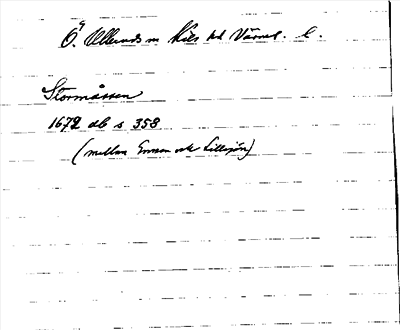 Ö. Ullerud sn Kils hd Värml. l.
Stormossen
1672 db s 358
(mellan Emsen och Lillsjön)